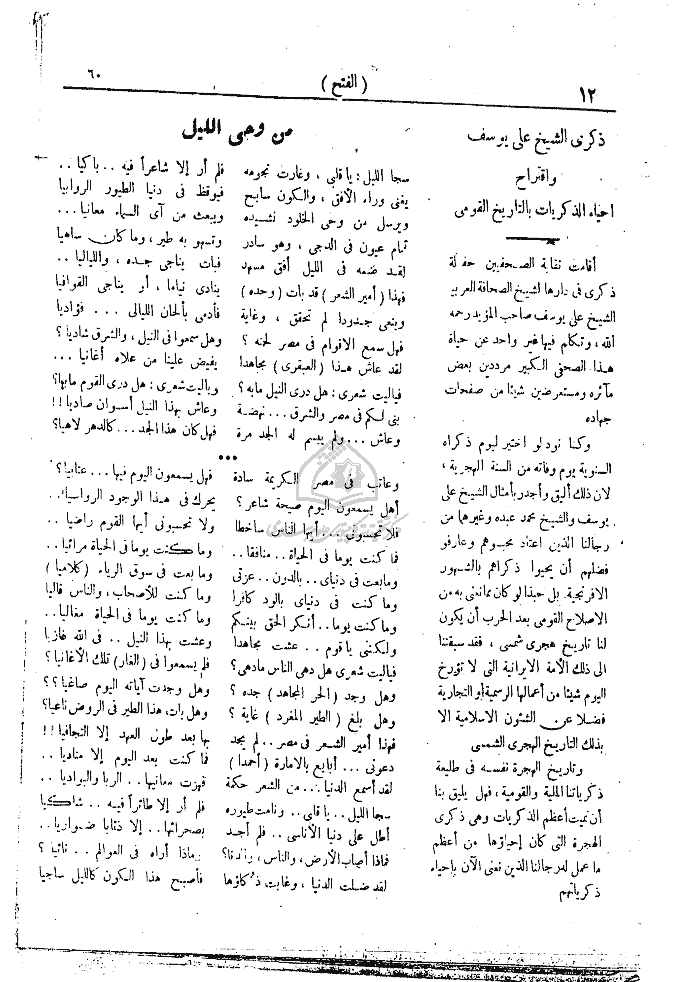 ١٢
( الفتح )
٦٠
ذكرى الشيخ على يوسف
واقتراح
احياء الذكريات بالتاريخ القومى
أقامت نقابة الصحفيين حفلة
ذكرى فى دارها لشيخ الصحافة العربية
الشيخ على يوسف صاحب المؤيد رحمه
الله، وتكلم فيها غير واحد عن حياة
هذا الصحفى الكبير مرددين بعض
مآثره ومستعرضين شيئا من صفحات
جهاده
وكنا نود لو اختير ليوم ذكراه
السنوية يوم وفاته من السنة الهجرية ،
لان ذلك أليق وأجدر بأمثال الشيخ على
يوسف والشيخ محمد عبده وغيرهما من
رجالنا الذين اعتاد محبوهم وعارفو
فضلهم أن يحيوا ذكراهم بالشهور
الافرنجية. بل حبذا لو كان مما نعنى به من
الاصلاح القومى بعد الحرب أن يكون
لنا تاريخ هجرى شمسى ، فقد سبقتنا
الى ذلك الأمة الايرانية التى لا تؤرخ
اليوم شيئا من أعمالها الرسمية أو التجارية
فضلا عن الشئون الاسلامية الا
بذلك التاريخ الهجرى الشمسى
وتاريخ الهجرة نفسه فى طليعة
ذكرياتنا الملية والقومية ، فهل يليق بنا
أن نميت أعظم الذكريات وهى ذكرى
الهجرة التى كان إحياؤها من أعظم
ما عمل له رجالنا الذين نعنى الآن بإحياء
ذكرياتهم
من وحى الليل
سجا الليل : يا قلبى ، وغارت نجومه فلم أر إلا شاعراً فيه .. باكيا ..
يغنى وراء الأفق ، والكون سابح فيوقظ فى دنيا الطيور الروابيا
ويرسل من وحى الخلود نشيده ويبعث من آى السماء معانيا ...
تمام عيون فى الدجى ، وهو سادر وتسهو به طير ، وما كان ساهيا
لقد ضمه فى الليل أفق مسهد فبات يناجى جده .. والليا ليا ..
فهذا ( أمير الشعر ) قد بات ( وحده ) ينادى نياما ، أو يناجى القوافيا
وينعى جدودا لم تحقق ، وغاية فأدمى بألحان الليالى .. فؤاديا
فهل سمع الاقوام فى مصر لحنه ؟ وهل سمعوا فى النيل ، والشرق شاديا ؟
لقد عاش هذا ( العبقرى ) مجاهدا يفيض علينا من علاه أغانيا ...
فياليت شعرى : هل درى النيل مابه ؟ وياليت شعرى : هل درى القوم مابها ؟
بنى لكم فى مصر والشرق ... نهضة وعاش بهذا النيل أسوان صاديا !!
وعاش .. ولم يبسم له الجد مرة فهل كان هذا الجد ... كالدهر لاهيا ؟
•••
وعاتب فى مصر الكريمة سادة فهل يسمعون اليوم فيها ... عتابيا ؟
أهل يسمعون اليوم صيحة شاعر ؟ يحرك فى هذا الوجود الرواسيا ..
فلا تحسبونى .. أيها الناس ساخطا ولا تحسبونى أيها القوم راضيا ..
فما كنت يوما فى الحياة .. منافقا .. وما كنت يوما فى الحياة مرائيا ..
وما بعت فى دنياى .. بالدون .. عزتى وما بعت فى سوق الرياء ( كلاميا )
وما كنت فى دنياى بالود كافرا وما كنت للأصحاب ، والناس قاليا
وما كنت يوما .. أنكر الحق بينكم وما كنت يوما فى الحياة مغاليا ..
ولكننى يا قوم .. عشت مجاهدا وعشت بهذا النيل .. فى الله غازيا
فياليت شعرى هل دهى الناس ما دهى ؟ فلم يسمعوا فى ( الغار ) تلك الأغانيا ؟
وهل وجد ( الحر المجاهد ) جده ؟ وهل وجدت آياته اليوم صاغيا ؟؟
وهل بلغ ( الطير المغرد ) غاية ؟ وهل بات هذا الطير فى الروض ناعيا ؟
فهذا أمير الشعر فى مصر .. لم يجد بها بعد طول العهد إلا التجافيا !!
دعونى ... أبايع بالامارة ( أحمدا ) فما كنت بعد اليوم إلا مناديا ..
لقد أسمع الدنيا .. من الشعر حكمة فهزت معانيها .. الربا والبواديا ..
سجا الليل .. يا قلبى .. ونامت طيوره فلم أر إلا طائراً فيه .. شاكيا
أطل على دنيا الأناسى .. فلم أجد بصحرائها .. إلا ذئابا ضواريا ..
فماذا أصاب الأرض ، والناس ، والدنا ؟ وماذا أراه فى العوالم .. نائيا ؟
لقد ضلت الدنيا ، وغابت ذكاؤها فأصبح هذا الكون كالليل ساجيا